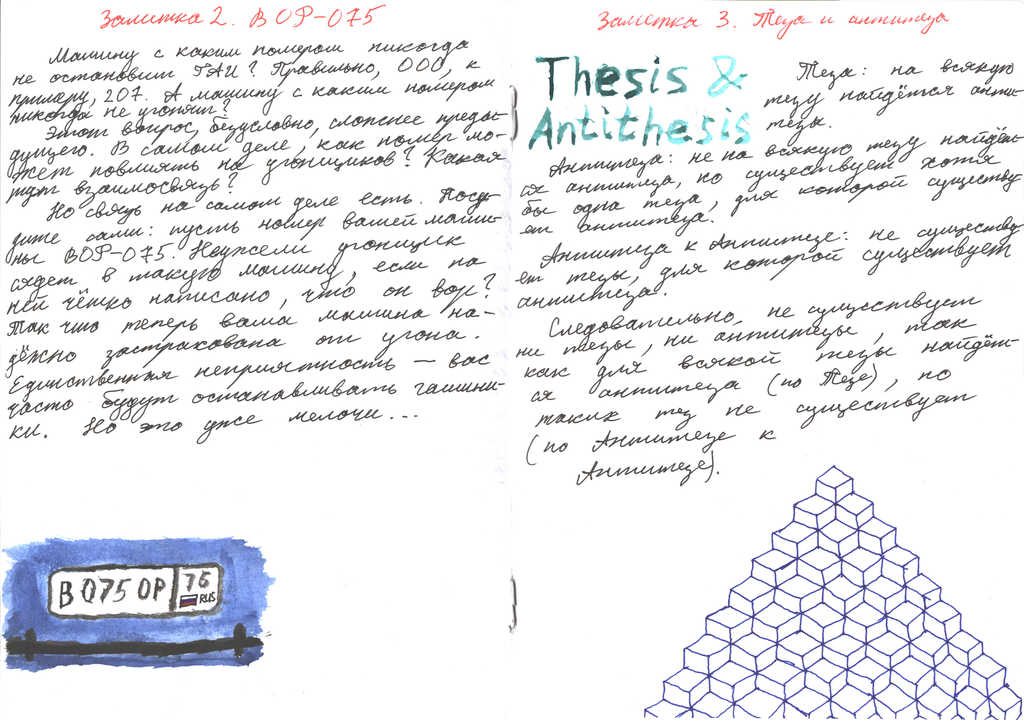 Заметка 2. ВОР-075
Машину с каким номером никогда
не остановит ГАИ? Правильно, ООО, к
примеру, 207. А машину с каким номером
никогда не угонят?
Этот вопрос, безусловно, сложнее преды-
дущего. В самом деле, как номер мо-
жет повлиять на угонщиков? Какая
тут взаимосвязь?
Но связь на самом деле есть. Посу-
дите сами: пусть номер вашей маши-
ны ВОР-075. Неужели угонщик
сядет в такую машину, если на
ней чётко написано, что он вор?
Так что теперь ваша машина на-
дёжно застрахована от угона.
Единственная неприятность — вас
часто будут останавливать гаишни-
ки. Но это уже мелочи...
В 075 ОР 76
RUS
Заметка 3. Теза и антитеза
Thesis &
Antithesis
Теза: на всякую
тезу найдётся анти-
теза.
Антитеза: не на всякую тезу найдёт-
ся антитеза, но существует хотя
бы одна теза, для которой существу-
ет антитеза.
Антитеза к Антитезе: не существу-
ет тезы, для которой существует
антитеза.
Следовательно, не существует
ни тезы, ни антитезы, так
как для всякой тезы найдёт-
ся антитеза (по Тезе), но
таких тез не существует
(по Антитезе к
Антитезе).